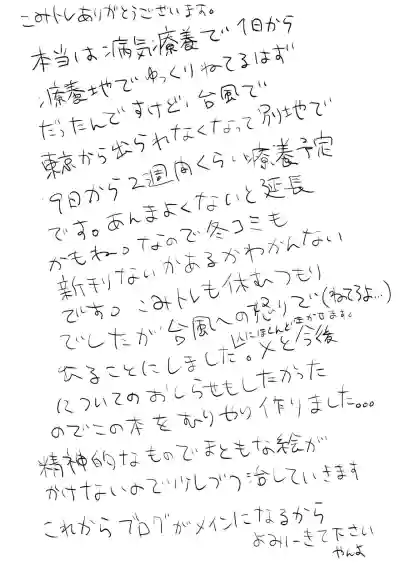 こみトレありがとうございます。
本当は病気療養で1日から
療養地でゆっくりねてるはず
だったんですけど、台風で
東京から出られなくなって別地で
9日から2週間くらい療養予定
です。あんまよくないと延長
かもね。なので冬コミも
新刊ないかあるかわかんない
です。こみトレも休むつもり
でしたが台風への怒りで(ねてろよ…)
出ることにしました。〆と今後
にほとんどまかせます。
についてのおしらせもしたかった
のでこの本をむりやり作りました…。
精神的なものでまともな絵が
かけないので少しづつ治していきます
これからブログがメインになるから
よみにきて下さい
やんよ